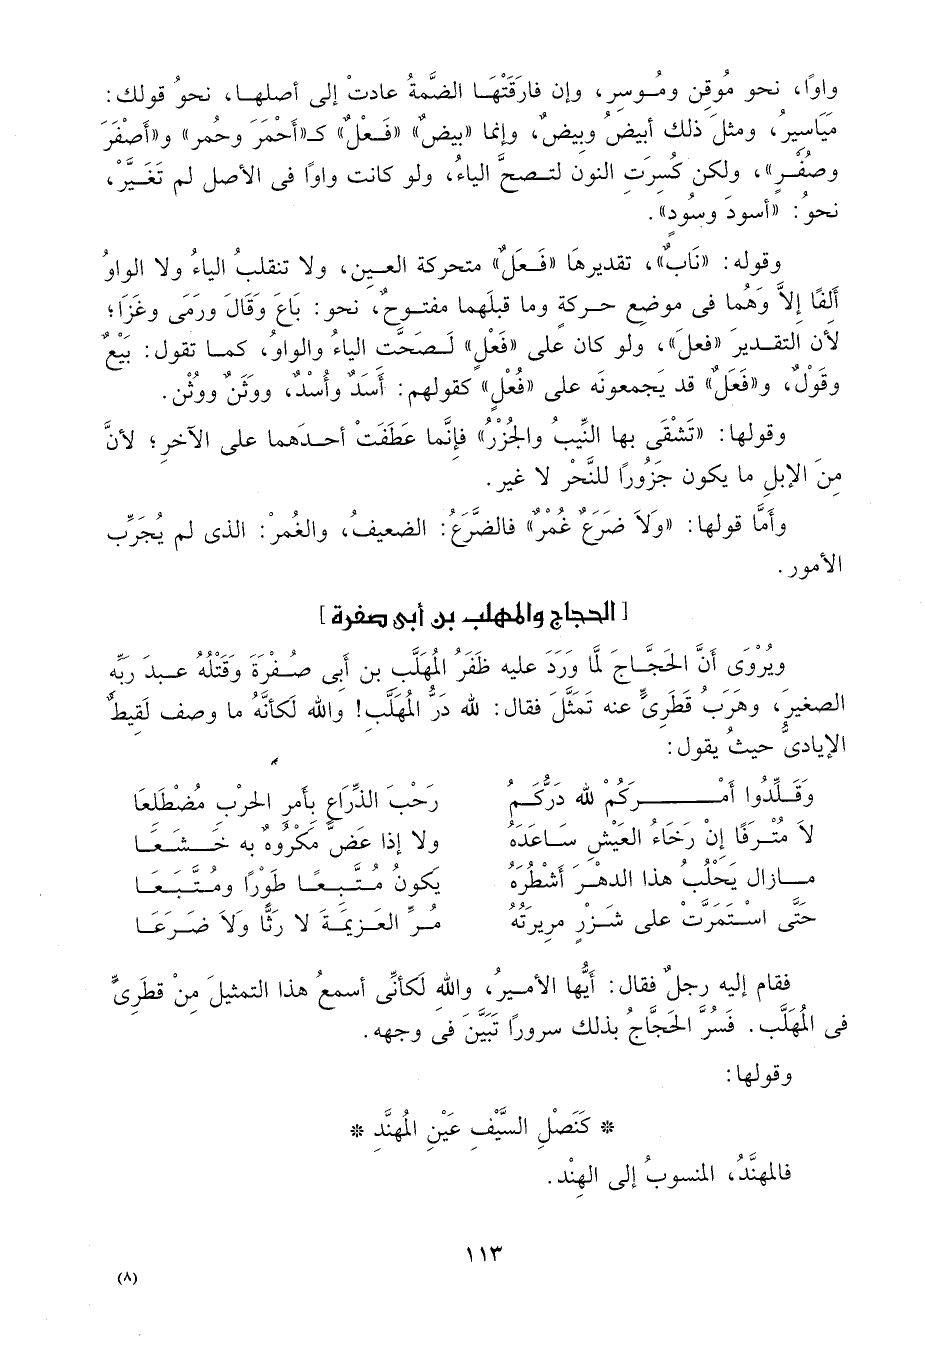 واوًا، نحو مُوقِن ومُـوسِر، وإن فارَقَتْهَا الضَّمةُ عادتْ إلى أصلهـا، نحوُ قولك:
مَيَاسِيرُ، ومثلُ ذلك أبيضُ وبِيضٌ، وإنما «بِيضٌ» «فَـعْلٌ» كـ«أَحْمَرَ وحُمر» و«أَصْفَرَ
وصُفْـرٍ»، ولكن كُسِرَتِ النون لتـصحَّ الياءُ، ولو كانت واوًا فى الأصل لم تَغَيَّرْ،
نحوُ: «أسودَ وسُودٍ».
وقوله: «نَابٌ»، تقديرهَا «فَـعَلٌ» متحركة العـين، ولا تنقلبُ الياءُ ولا الواوُ
ألفًا إلاَّ وَهُما فى موضعِ حـركةٍ وما قبلَهما مفتـوحٌ، نحو: بَاعَ وَقَالَ ورَمَى وغَزَا؛
لأن التقـديرَ «فعلَ»، ولو كان على «فَعْلٍ» لَـصَحَّتِ الياءُ والواوُ، كمـا تقول: بَيْعٌ
وقَوْلٌ، و«فَعَلٌ» قد يَجمعونَه على «فُعْلٍ» كقولهم: أَسَدٌ وأُسْدٌ، ووَثَنٌ ووُثْن.
وقولها: «تَشْقَى بها النِّيبُ والجُزْرُ» فإنَّما عَطَفَتْ أحـدَهما على الآخرِ؛ لأنَّ
مِنَ الإبلِ ما يكون جَزُورًا للنَّحْرِ لا غير.
وأمَّا قولها: «وَلاَ ضَرَعٌ غُمْرٌ» فالضَّرَعُ: الضعيفُ، والغُمرْ: الذى لم يُجَرِّبِ
الأمور.
[الحجاج والمهلب بن أبى صفرة]
ويُرْوَى أنَّ الحَجَّـاجَ لمَّا وَرَدَ عليه ظَفَرُ المُهَلَّبِ بن أبى صُـفْرَةَ وَقَتْلُهُ عـبدَ ربِّه
الصغيرَ، وهَرَبُ قَطَرِىٍّ عنه تَمَثَّلَ فقال: لله دَرُّ المُهَلَّبِ! والله لَكأنَّهُ ما وصف لَقيطٌ
الإيادىُّ حيثُ يقول:
وقَـلِّدُوا أَمْـــــــرَكُم لله دَرُّكُـمُ    رَحْبَ الذِّرَاعِ بأمرِ الحَرْبِ مُضْطَلِعَا
لاَ مُتْـرَفًا إنْ رَخَاءُ العَيْشِ سَـاعَدَهُ    ولا إذا عَضَّ مَكْرُوهٌ به خَـــشَـعَـا
مــازال يَحْلُبُ هذا الدهـرَ أَشْطُرَهُ    يكونُ مُـتَّـبِعًـا طَوْرًا ومُـتَّـبَعَـا
حتَّى اسْـتَمَرَّتْ على شَـزْرٍ مريرتُه    مُـرَّ العَـزِيمَـةِ لا رَثًّا وَلاَ ضَـرَعَـا
فقام إليه رجلٌ فقال: أيُّها الأمـيرُ، واللهِ لَكأنِّى أسمعُ هذا التمثيلَ مِنْ قطَرِىٍّ
فى المُهَلَّبِ. فَسُرَّ الحَجَّاجُ بذلك سرورًا تَبَيَّنَ فى وجهه.
وقولها:
* كَنَصْلِ السَّيْفِ عَيْنِ المُهنَّدِ *
فالمهنَّدُ، المنسوبُ إلى الهِنْد.
١١٣
(٨)